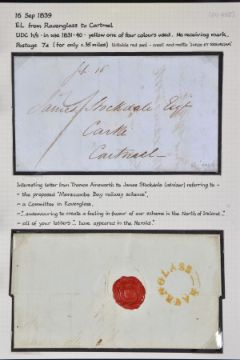 16 Sep 1839
EL from Ravenglass to Cartmel
UDC h/s - in use 1831-40 - yellow one of four colours used. No receiving mark.
Postage 7d (for only c.35 miles)
James Stockdale Esqr
Carke
Cartmel
Interesting letter from Thomas Ainsworth to James Stockdale (advisor) referring to -
- the proposed "Morecambe Bay railway scheme",
- a Committee in Ravenglass,
- "..endeavouring to create a feeling in favour of our scheme in the North of Ireland.."
- all of your letters .. have appeared in the Herald."
RAVENGLASS